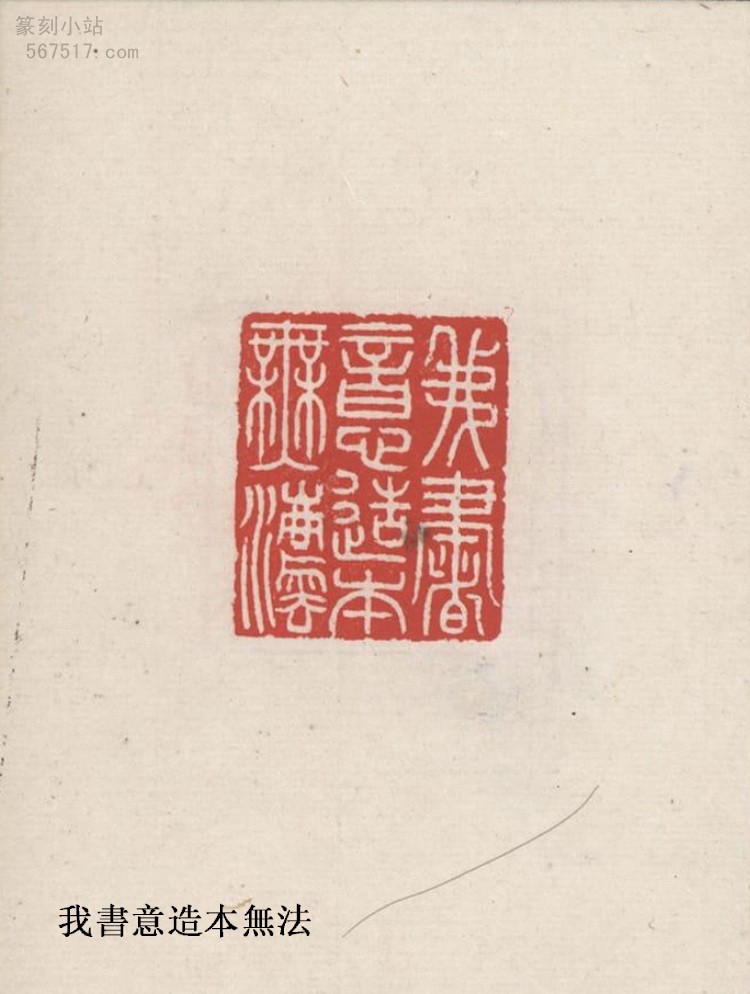 篆刻小站
567517.com
我書
意造本
無法
我書意造本無法